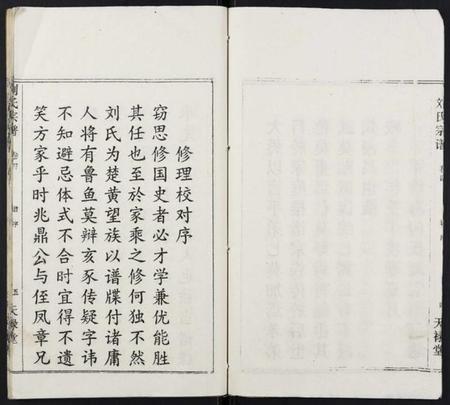 修理校对序
窃思修国史者必才学兼优能胜
其任也至於家乘之修何独不然
刘氏为楚黄望族以谱牒付诸庸
人将有鲁鱼莫辩亥豕传疑字讳
不知避忌体式不合时宜得不遗
笑方家乎时兆鼎公与侄凤章兄
刘氏宗谱
五
天禄堂
刘氏宗谱
天禄堂